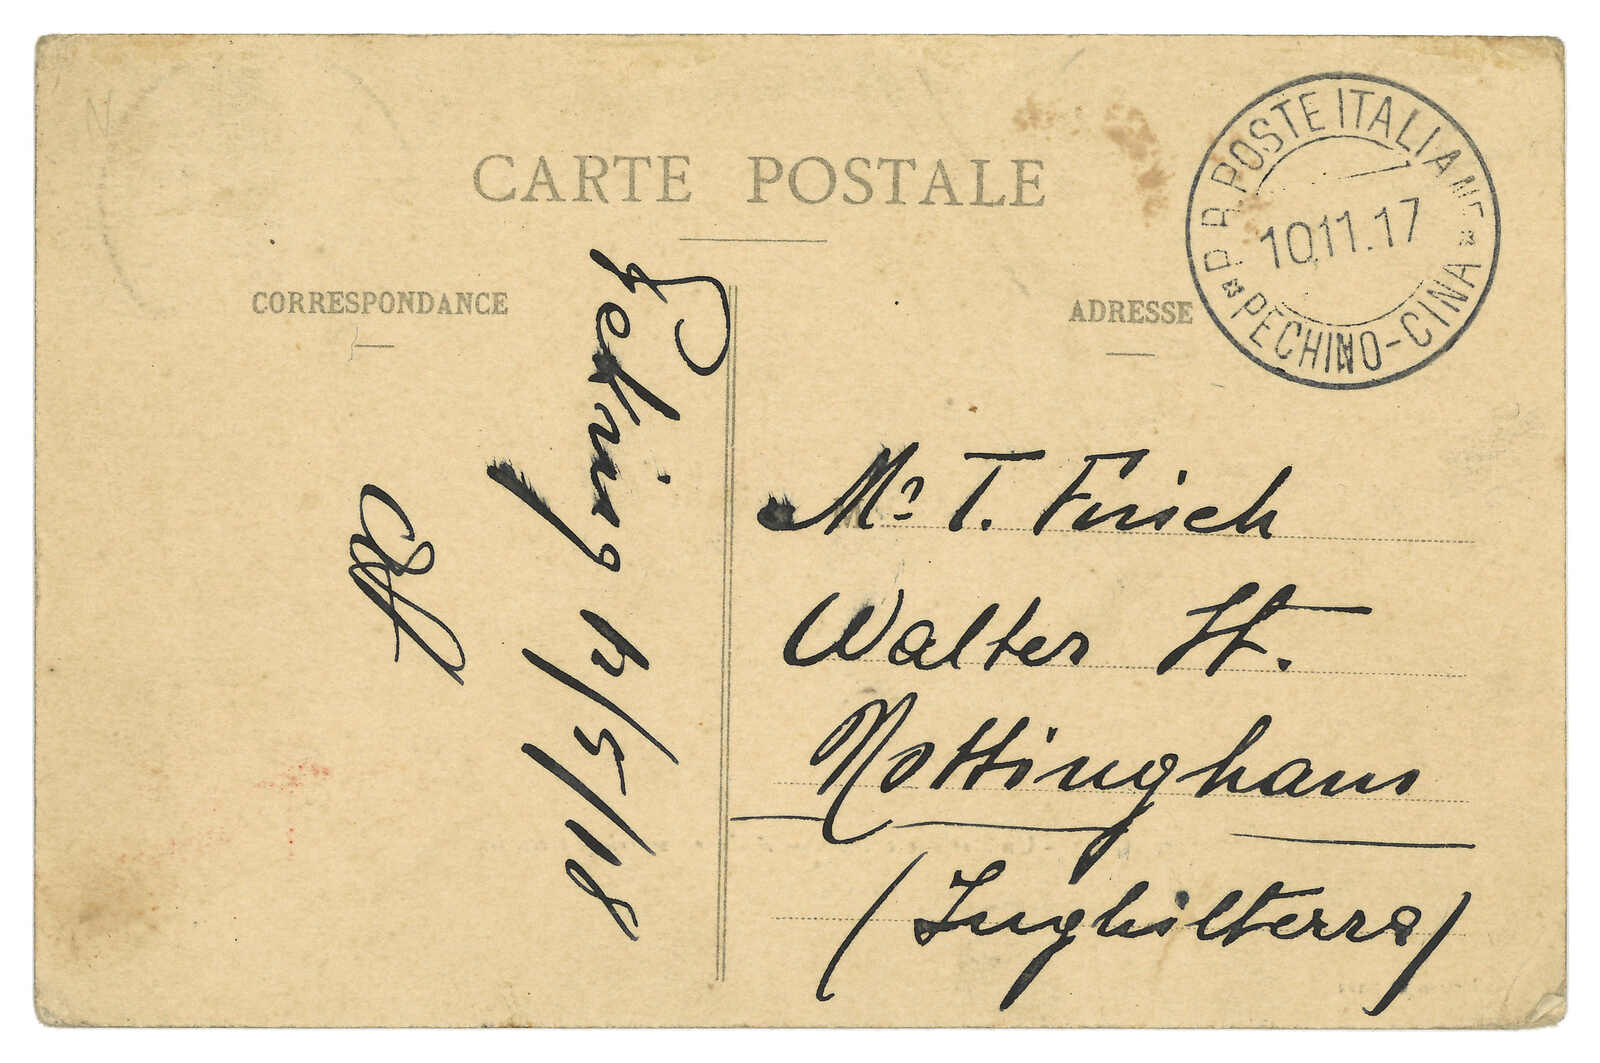 CARTE POSTALE
CORRESPONDANCE
ADRESSE
P.R. POSTE ITALIANE
10.11.17
PECHINO-CINA
Peking 4/5/18
Mr T. Firsch
Walter St.
Nottingham
(Inghilterra)